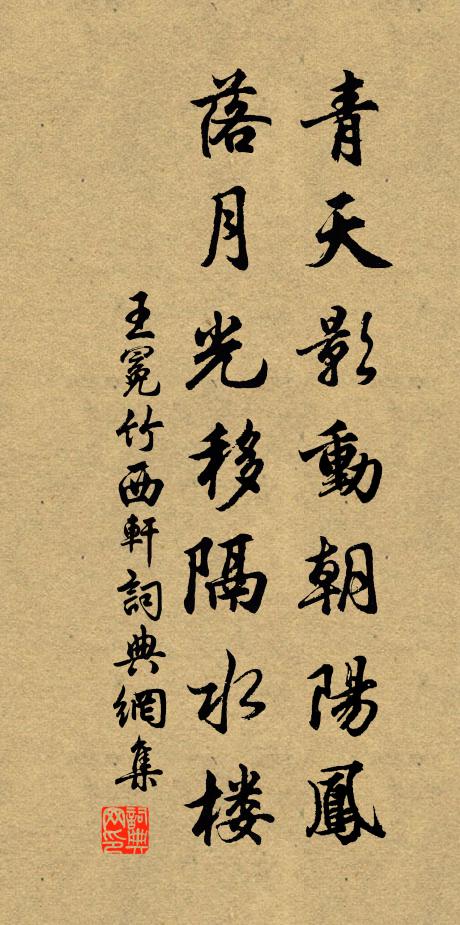 青天影動朝陽鳳
落月光移隔水楼
王冕竹西軒詞典網集
詞典
网印